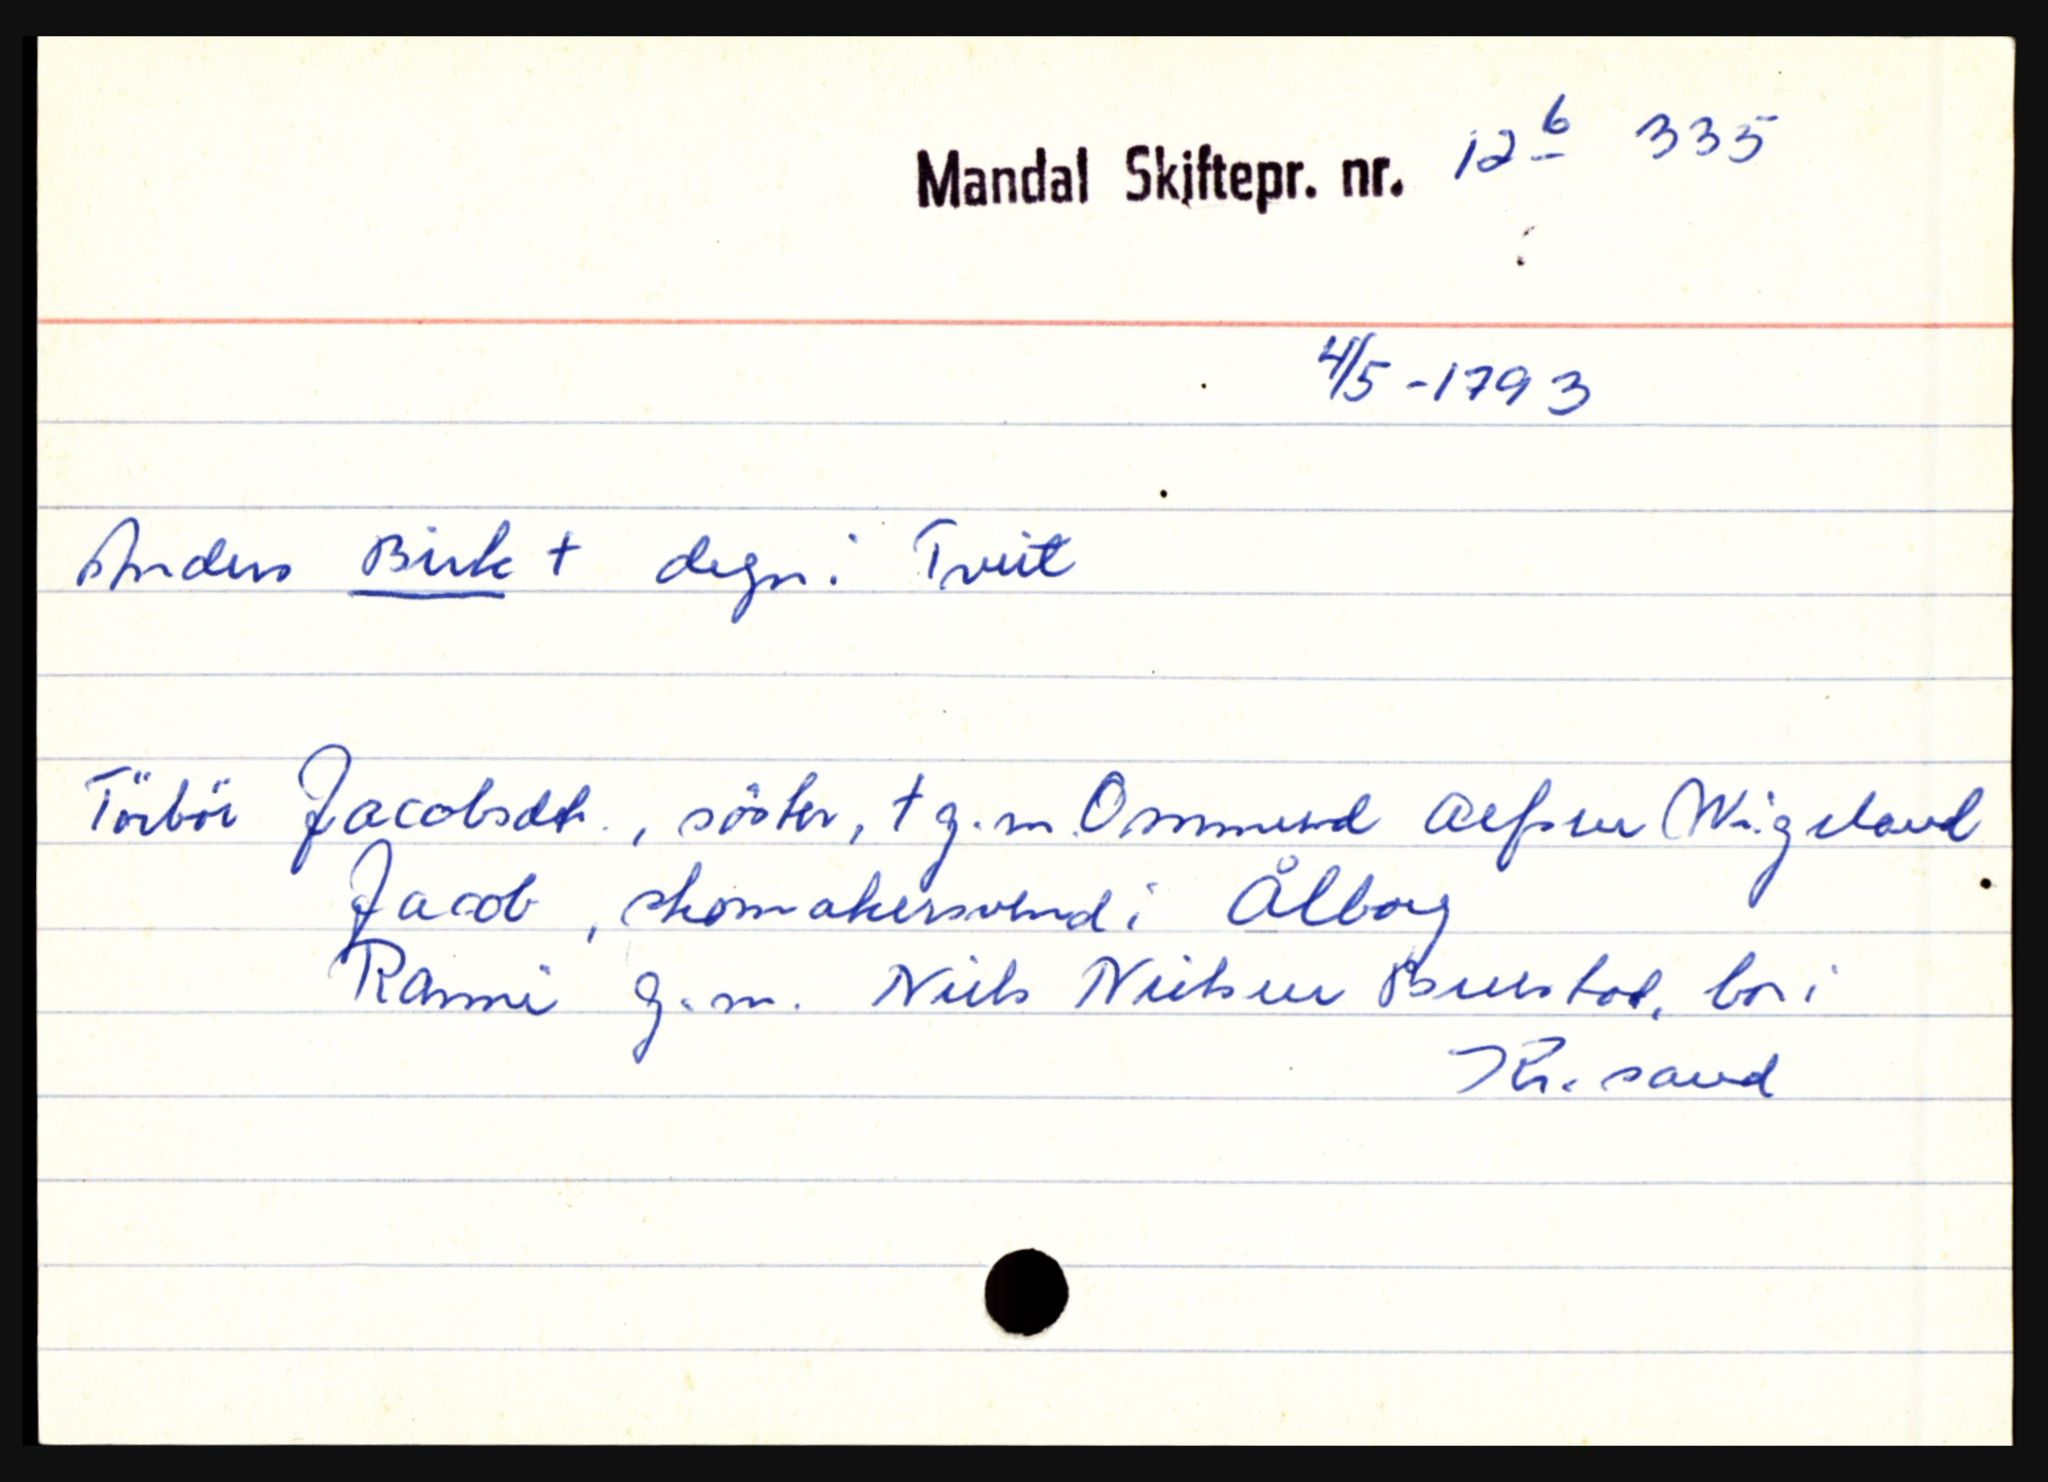 Mandal Skiftepr. nr. 12 b 335
4/5 - 1793
Anders Birk † degn i Tveit
Törbör Jacobsdt., söster, † g.m. Ommund Alfsen Wigeland
Jacob, skomakersvend i Ålborg
Rannei g.m. Niels Nielsen Buestad, bor i
Kr.sand